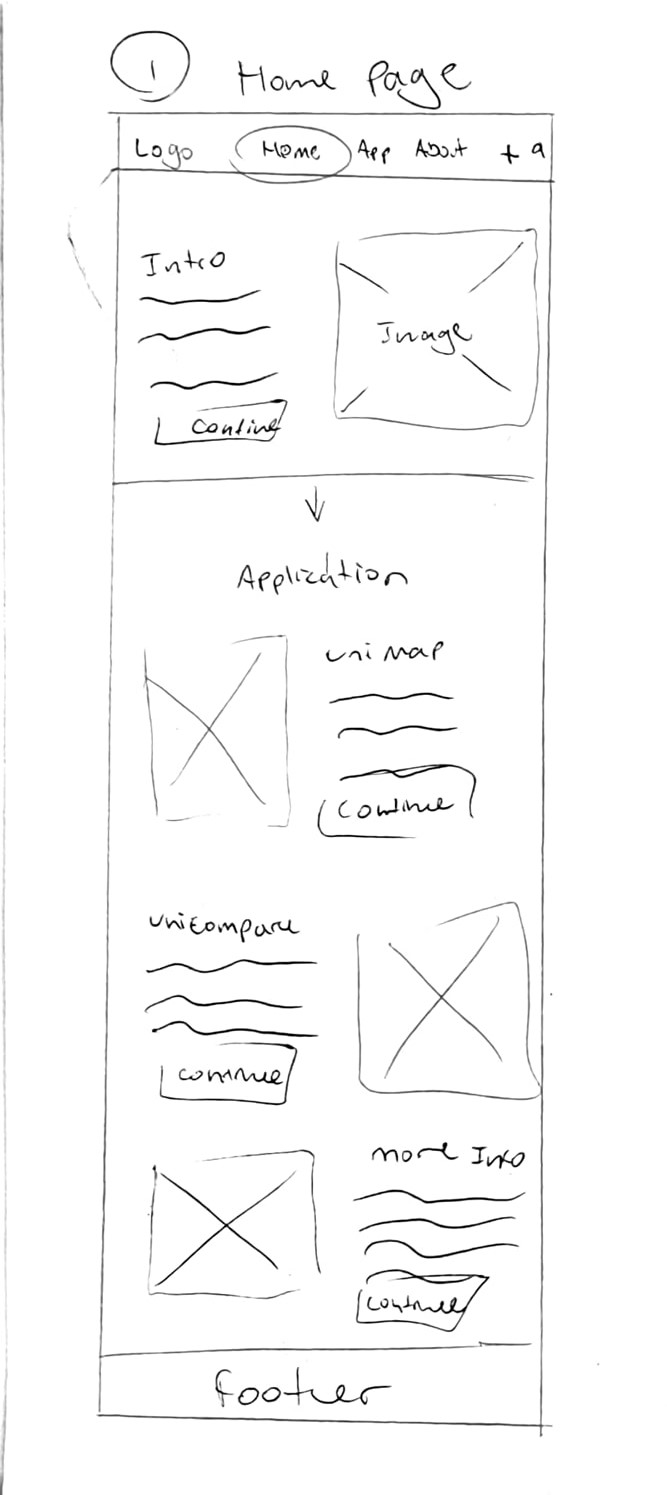 1 Home Page
Logo Home App About + a
Intro
Image
Continue
Application
uni Map
Continue
uniCompare
continue
more Info
continue
footer